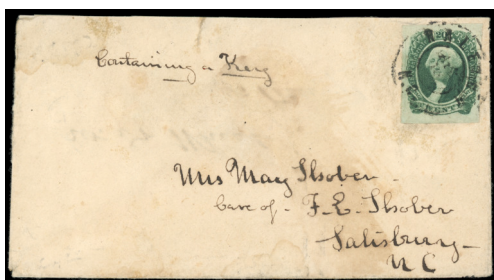 Containing a Key
20
CENTS
Mrs May Shober -
Care of - F. E. Shober
Salisbury -
N C